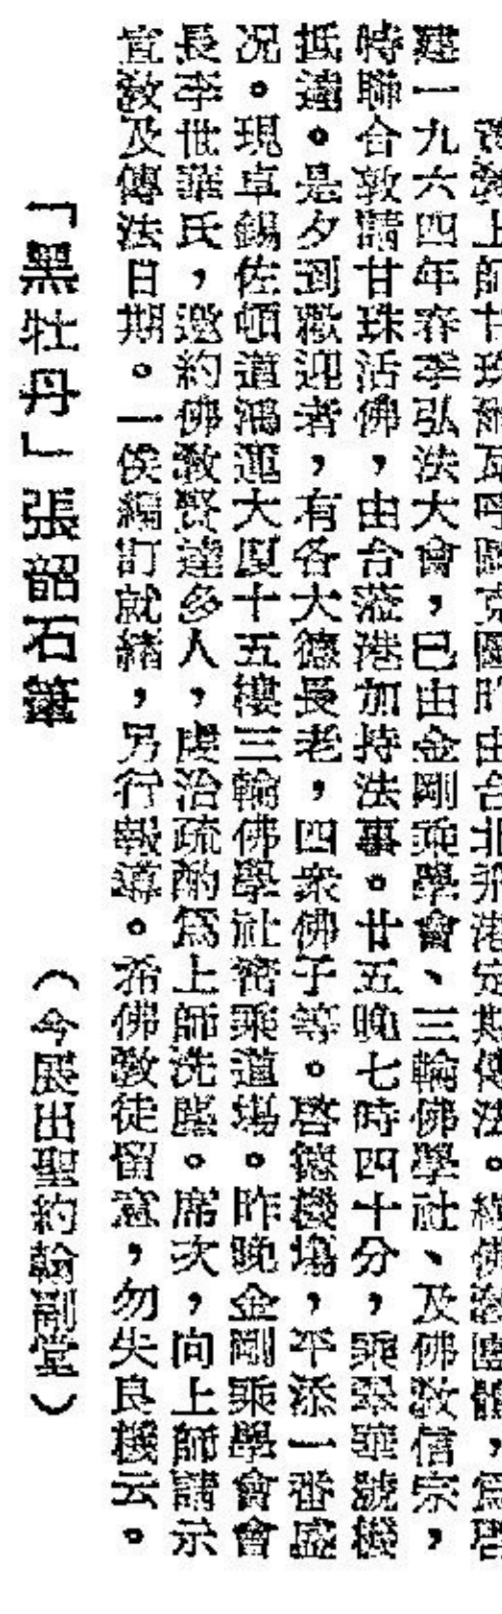 上師甘珠
由台北飛港定期傳法。佛教團體，為啓
建一九六四年春季弘法大會，已由金剛乘學會、三輪佛學社、及佛教信宗，
時聯合敦請甘珠活佛，由台蒞港加持法事。廿五晚七時四十分，乘翠華號機
抵達。是夕到歡迎者，有各大德長老，四衆佛子等。啓德機塲，平添一番盛
况。現卓錫佐頓道鴻運大厦十五樓三輪佛學社密乘道塲。昨晚金剛乘學會會
長李世華氏，邀約佛敎賢達多人，虔治疏酌爲上師洗塵。席次，向上師請示
宣敎及傳法日期。一俟編訂就緒，另行報導。希佛敎徒留意，勿失良機云。
「黑牡丹」張韶石筆 （今展出聖約翰副堂）